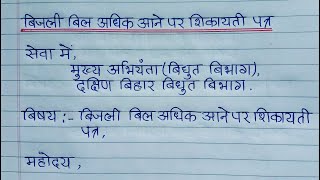 बिजली बिल अधिक आने पर शिकायती पत्र
सेवा में,
मुख्य अभियंता (विधुत बिभाग),
दक्षिण बिहार विधुत बिभाग.
बिषय :- बिजली बिल अधिक आने पर शिकायती
पत्र,
महोदय,